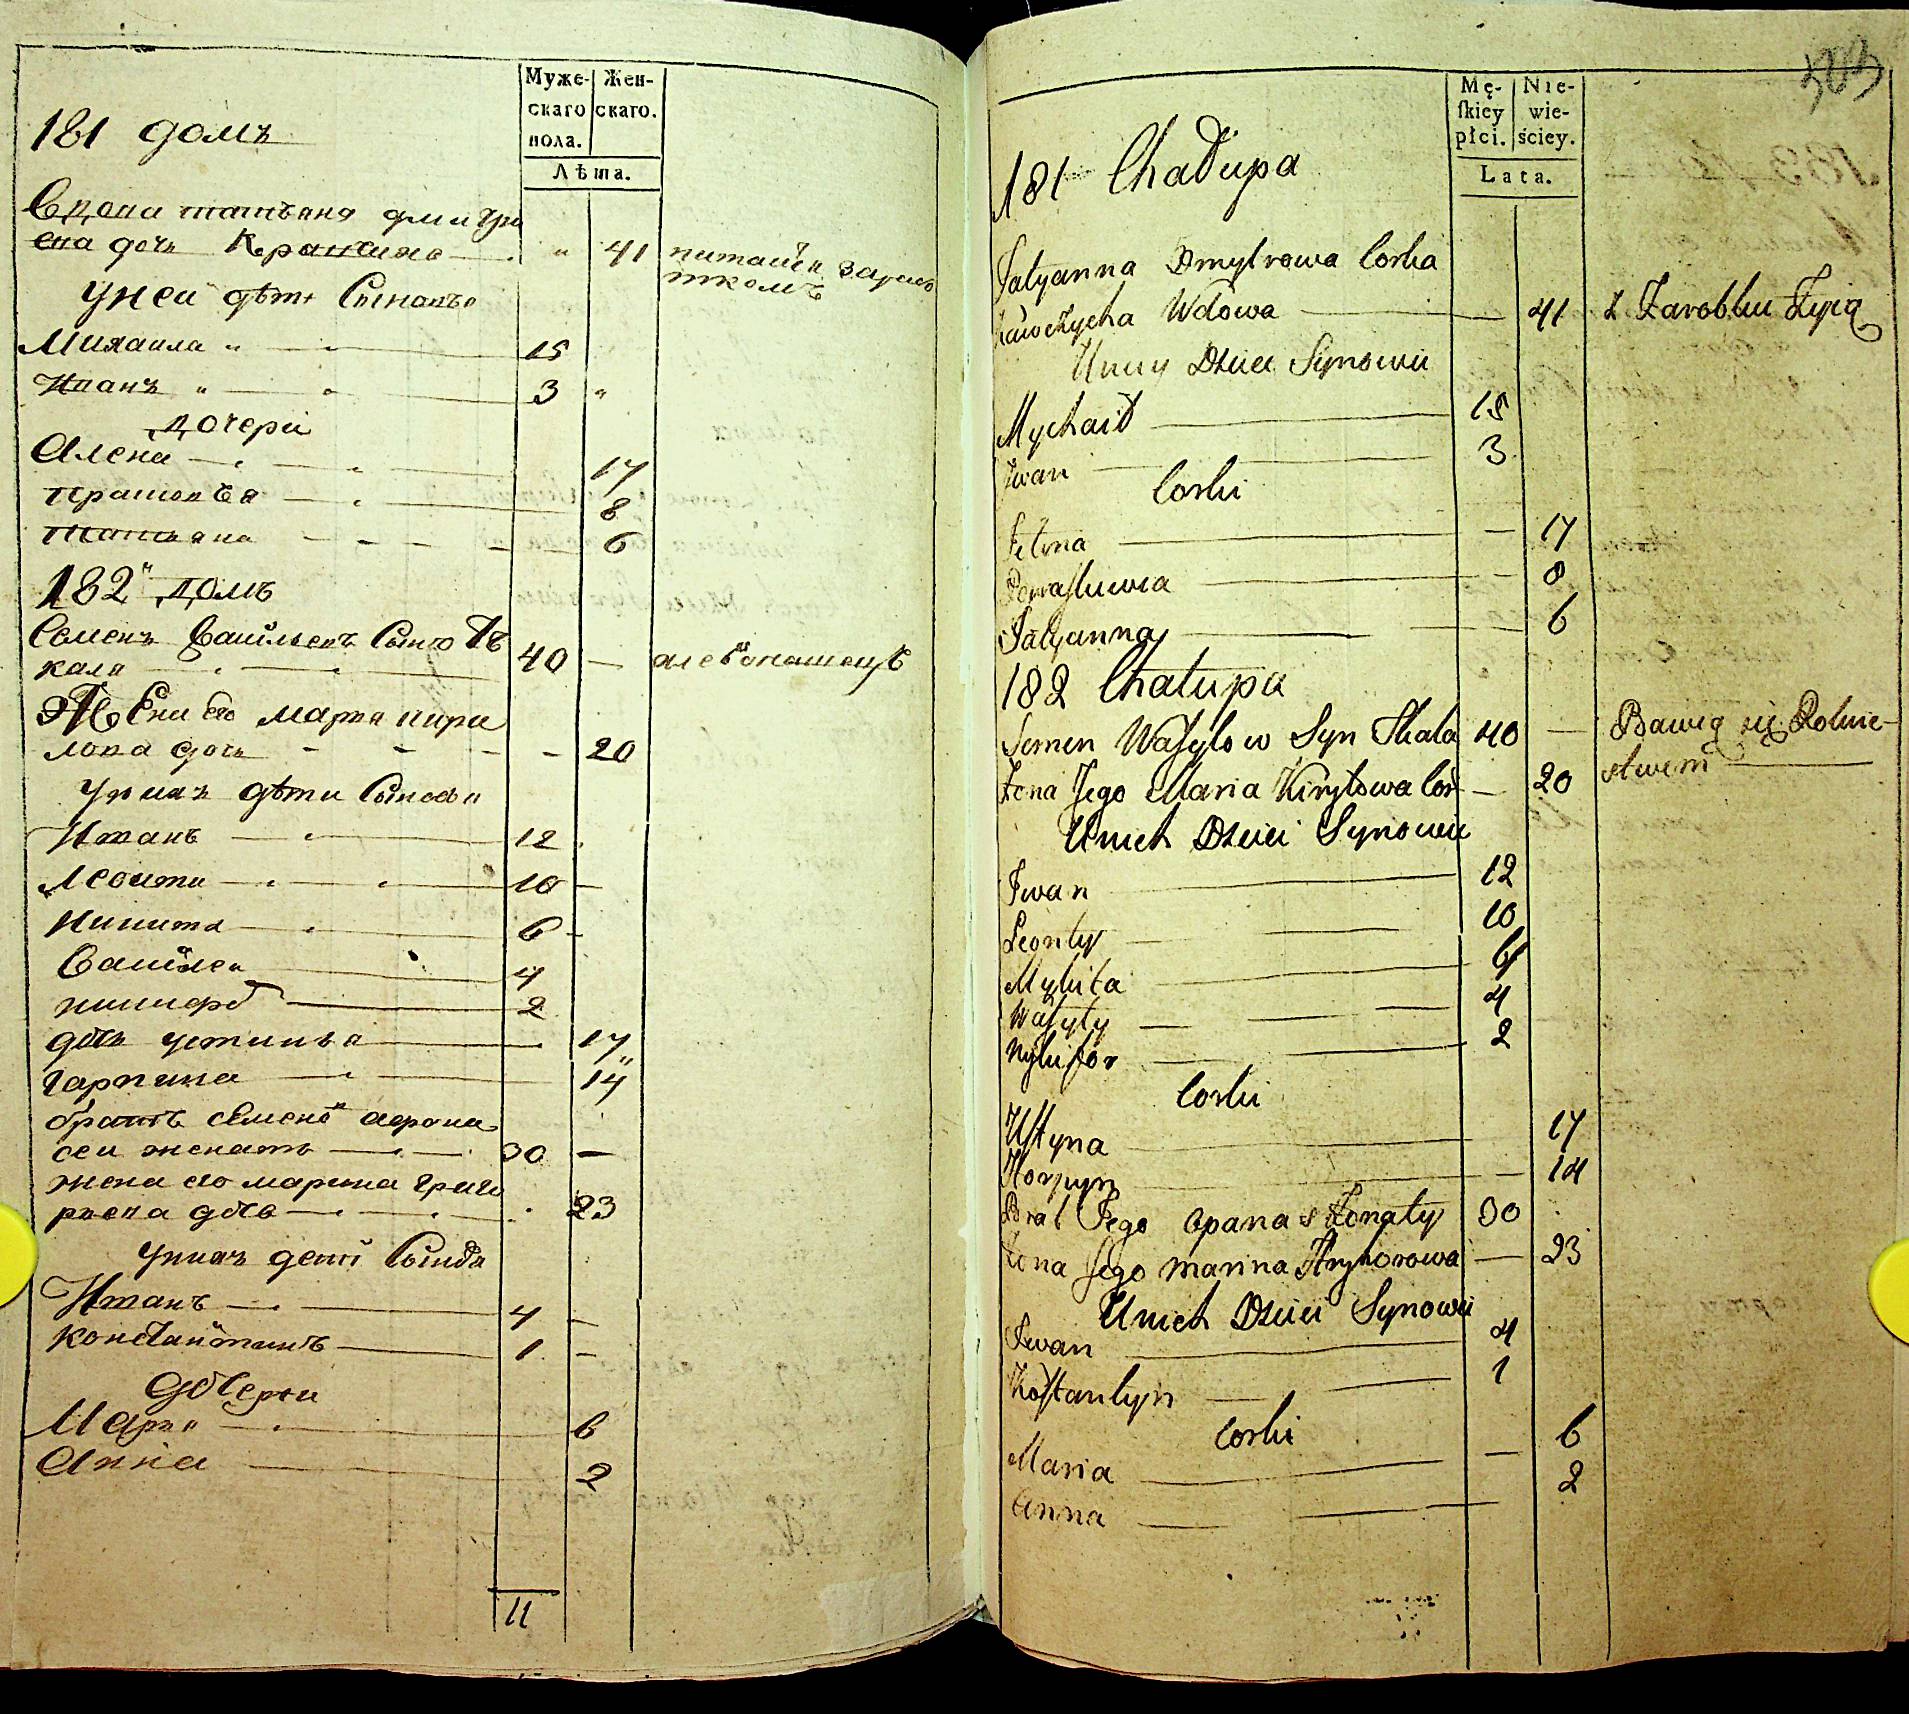 Муже-
скаго
пола.
Жен-
скаго.
Лѣта.
181 домъ
Вдова татъяна дмитро
ева дочь Кравчиха — " 41 питаися зарабо
ткомъ
У неи дѣти Сыновъя
Михаила " — 15
Иванъ " — 3 "
дочери
Алена — 17
прасковъя — 8
татияна — 6
182 домъ
Семенъ Васильевъ Сынъ
кала — 40 —
Жена его мария кири
лова дочь — 20
У нихъ дѣти Сыновя
Иванъ — 12
Леонти — 10 —
Никита — 6 –
Василеи — 4
никифоръ — 2
дочь устинья — 17
гарпина — 14
братъ семена афона
сеи женатъ — 30 —
жена его марина григо
рьева дочь — 23
У нихъ дети Сынова
Иванъ — 4 –
Констаньтинъ — 1 –
дочери
Мария — 6
Анна — 2
11
303
Mę-
skiey
płci.
Nie-
wie-
ściey.
Lata.
181 Chałupa
Tatyanna Dmytrowa Corka
Krawczycha Wdowa — 41 z Zarobku Zyią
Uniey Dzieci Synowie
Mychaił — 15
Iwan — 3
Corki
— 17
Paraskiewia — 8
Tatyanna — 6
182 Chałupa
Semen Wasylow Syn Skala 40 — Bawią się Rolnic-
stwem —
Zona Jego Maria Kiryłowa Cor — 20
Unich Dzieci Synowie
Iwan — 12
Leonty — 10
Mykita — 6
Wasyly — 4
Nykifor — 2
Corki
Ustyna — 17
Horpyn — 14
Brat Jego Opanas Zonaty 30
Zona Jego Marina Hryhorowa — 23
Unich Dzieci Synowie
Iwan — 4
Kostantyn — 1
Corki
Maria — 6
Anna — 2